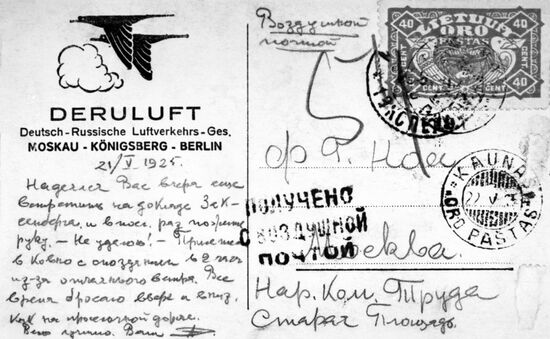 DERULUFT
Deutsch-Russische Luftverkehrs-Ges.
MOSKAU - KÖNIGSBERG - BERLIN
21/V 1925.
Надеялся Вас вчера еще
встретить на докладе
и в посл. раз пожать
руку. – Не удалось! – Прилетел
в Ковно с опозданием в 2 часа
из-за отчаянного ветра. Все
время бросало вверх и вниз,
как на проселочной дороге.
Ваш
Воздушной
почтой
LIETUVA
ORO
PAŠTAS
40
40
40
40
CENT
CENT
CENTŲ
KAUNAS
ORO PASTAS
22 V
ПОЛУЧЕНО
С ВОЗДУШНОЙ
ПОЧТОЙ
Москва.
Нар. Ком. Труда
Старая Площадь.